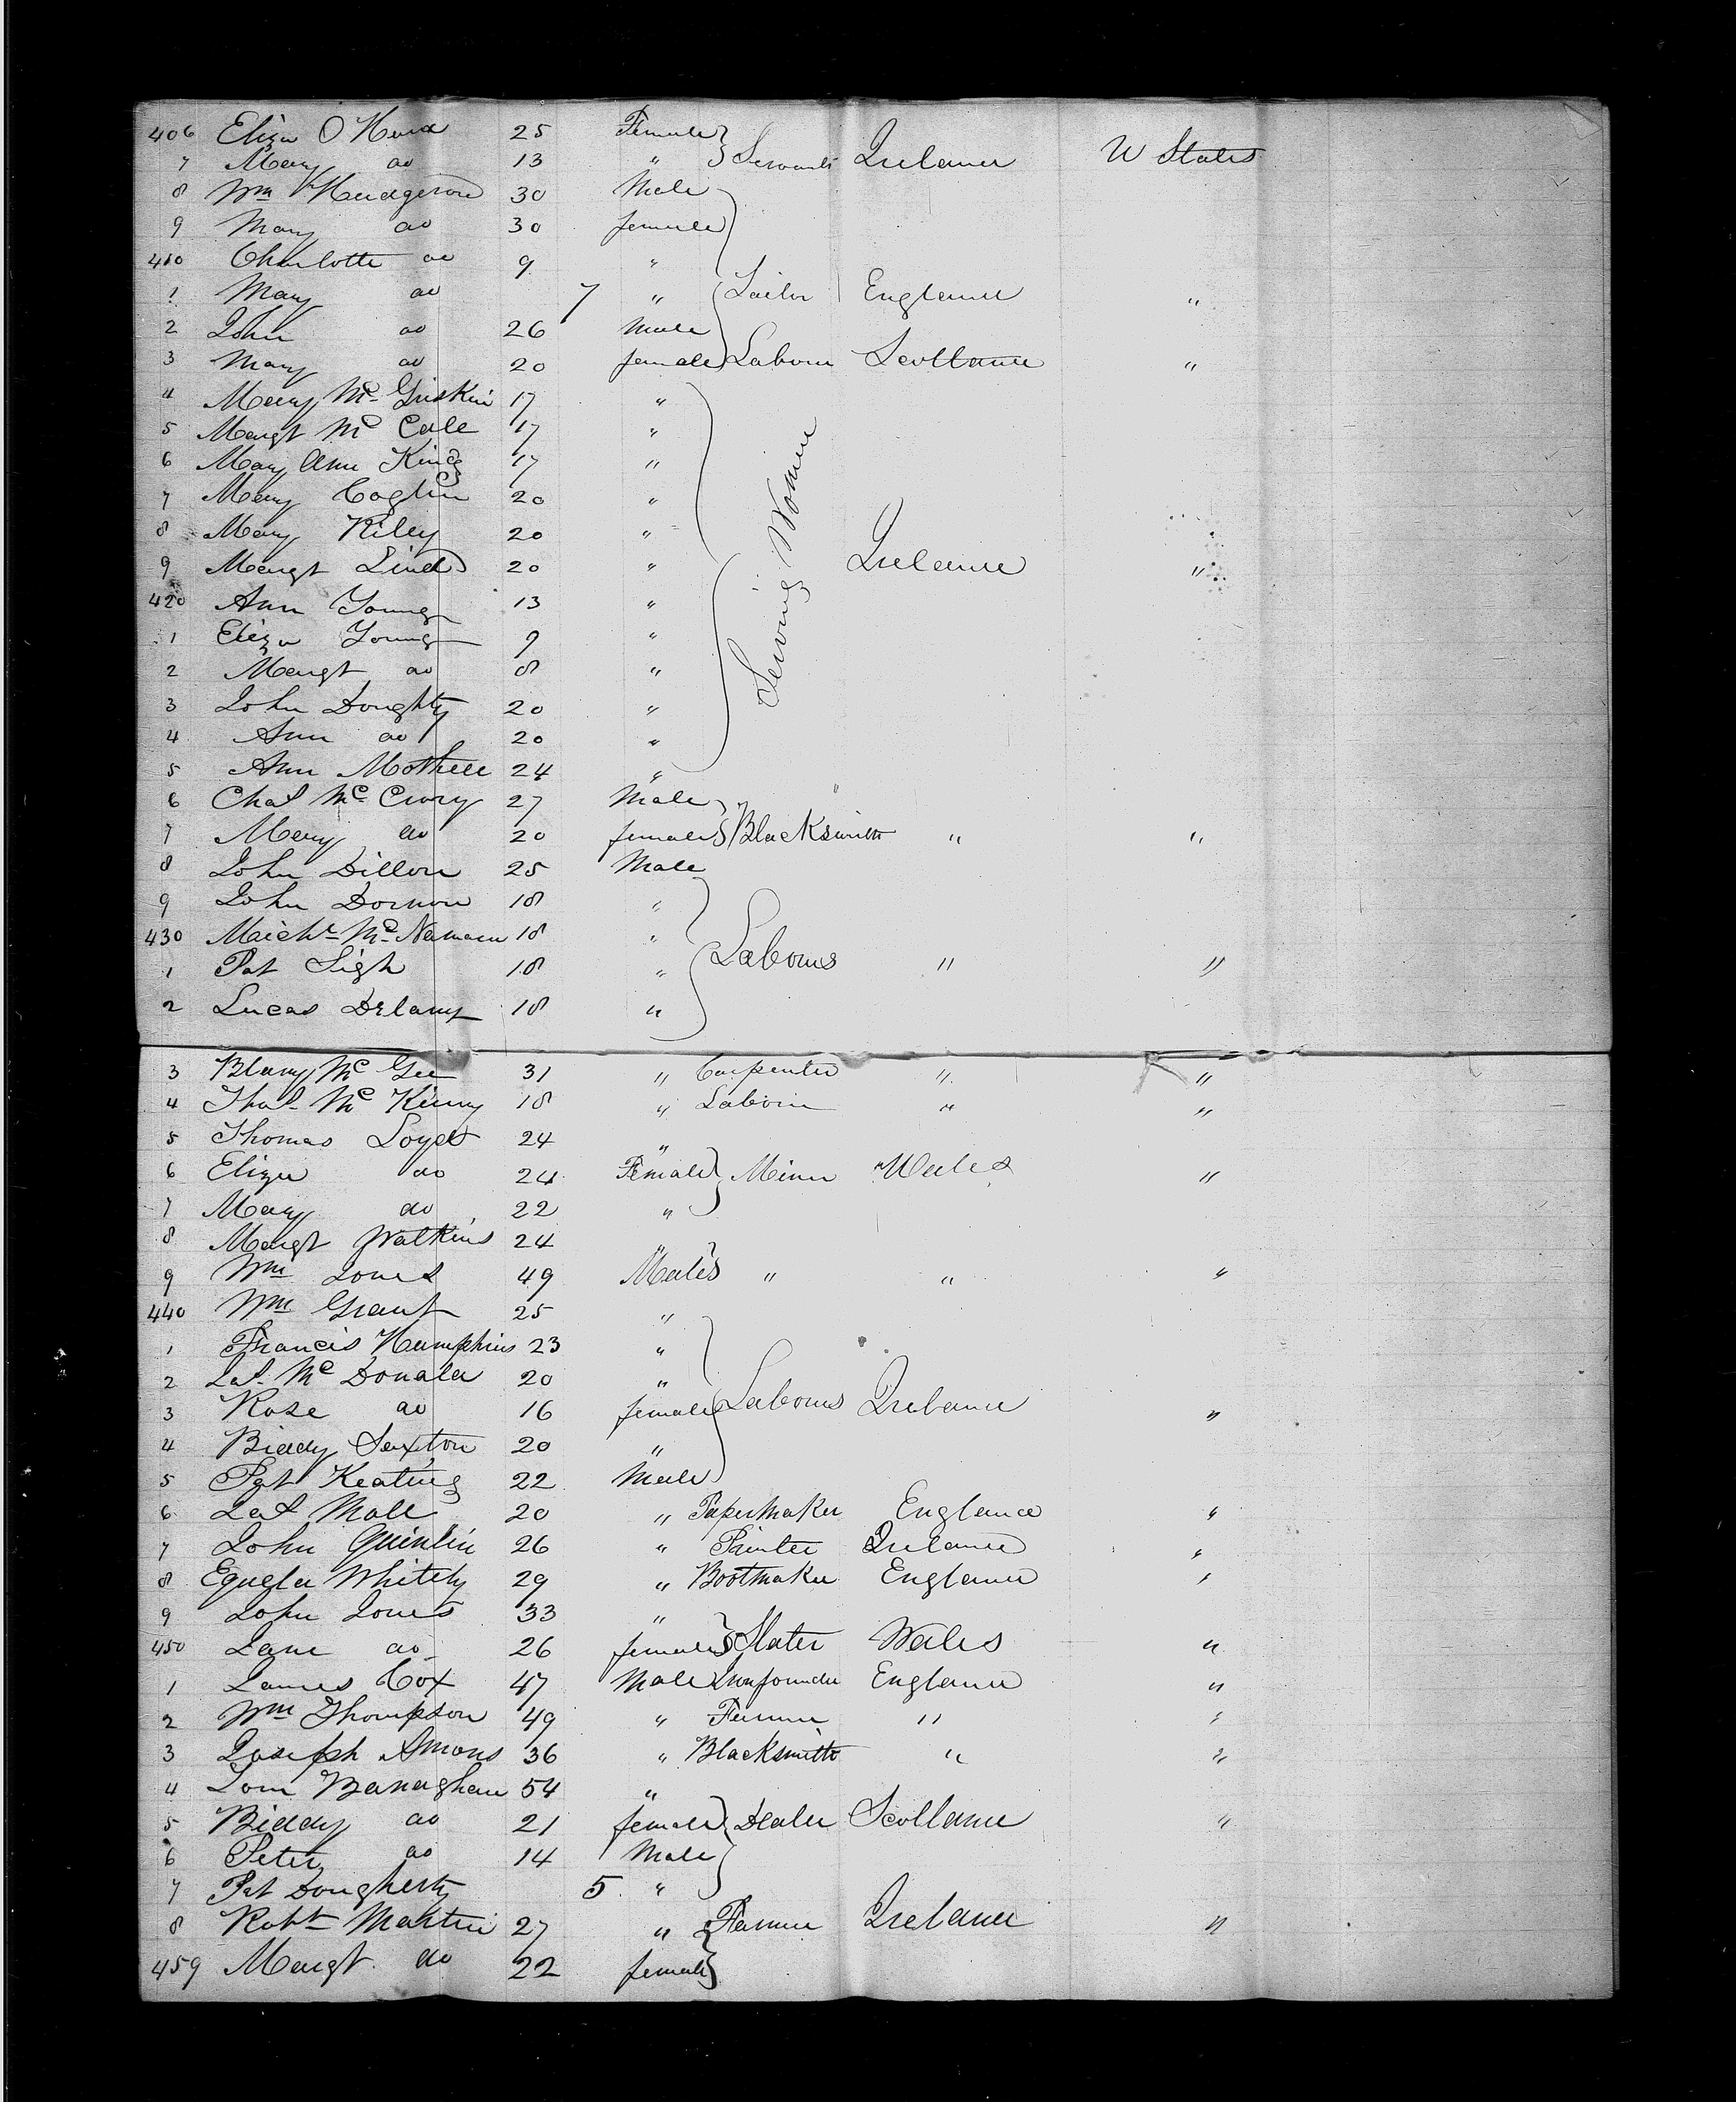 406 Eliza O Hara 25 Female
7 Mary do 13 " Servants Ireland U States
8 Wm Hudgeson 30 Male
9 Mary do 30 female
410 Charlotte do 9 "
1 Mary do 7 " Tailor England "
2 John do 26 Male
3 Mary do 20 female Laborer Scotland "
4 Mary Mc Griskin 17 "
5 Margt Mc Cale 17 "
6 Mary Ann King 17 "
7 Mary Coglin 20 "
8 Mary Riley 20 "
9 Margt Lind 20 " Serving Women Ireland "
420 Ann Young 13 "
1 Eliza Young 9 "
2 Margt do 8 "
3 John Doughty 20 "
4 Ann do 20 "
5 Ann Mothell 24 "
6 Chas Mc Crory 27 Male "
7 Mary do 20 female Blacksmith " "
8 John Dillon 25 Male
9 John Dornon 18 "
430 Maichl Mc Namara 18 "
1 Pat Ligh 18 " Laborers " "
2 Lucas Delany 18 "
3 Blany Mc Gee 31 " Carpenter " "
4 Thos Mc Kinny 18 " Laborer " "
5 Thomas Loyd 24 "
6 Eliza do 24 Female Miner Wales "
7 Mary do 22 "
8 Margt Watkins 24 "
9 Wm Jones 49 Male " " "
440 Wm Grant 25 "
1 Francis Humphries 23 "
2 Jas Mc Donald 20 "
3 Rose do 16 female Laborers Ireland "
4 Biddy Sexton 20 "
5 Pat Keating 22 Male
6 Jas Mall 20 " Papermaker England "
7 John Quinlin 26 " Painter Ireland "
8 Whitely 29 " Bootmaker England "
9 John Jones 33 "
450 Jane do 26 female Slater Wales "
1 James Cox 47 Male Ironfounder England "
2 Wm Thompson 49 " Farmer " "
3 Joseph Amons 36 " Blacksmith " "
4 Tom Banaghan 54 "
5 Biddy do 21 female Dealer Scotland "
6 Peter do 14 Male
7 Pat Dougherty 5 "
8 Robt Martin 27 " Farmer Ireland "
459 Margt do 22 female